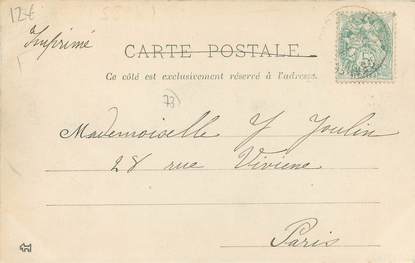 12€
Imprimé
CARTE POSTALE
Ce côté est exclusivement réservé à l'adresse.
73
Mademoiselle Y Joulin
28 rue Viviene
Paris